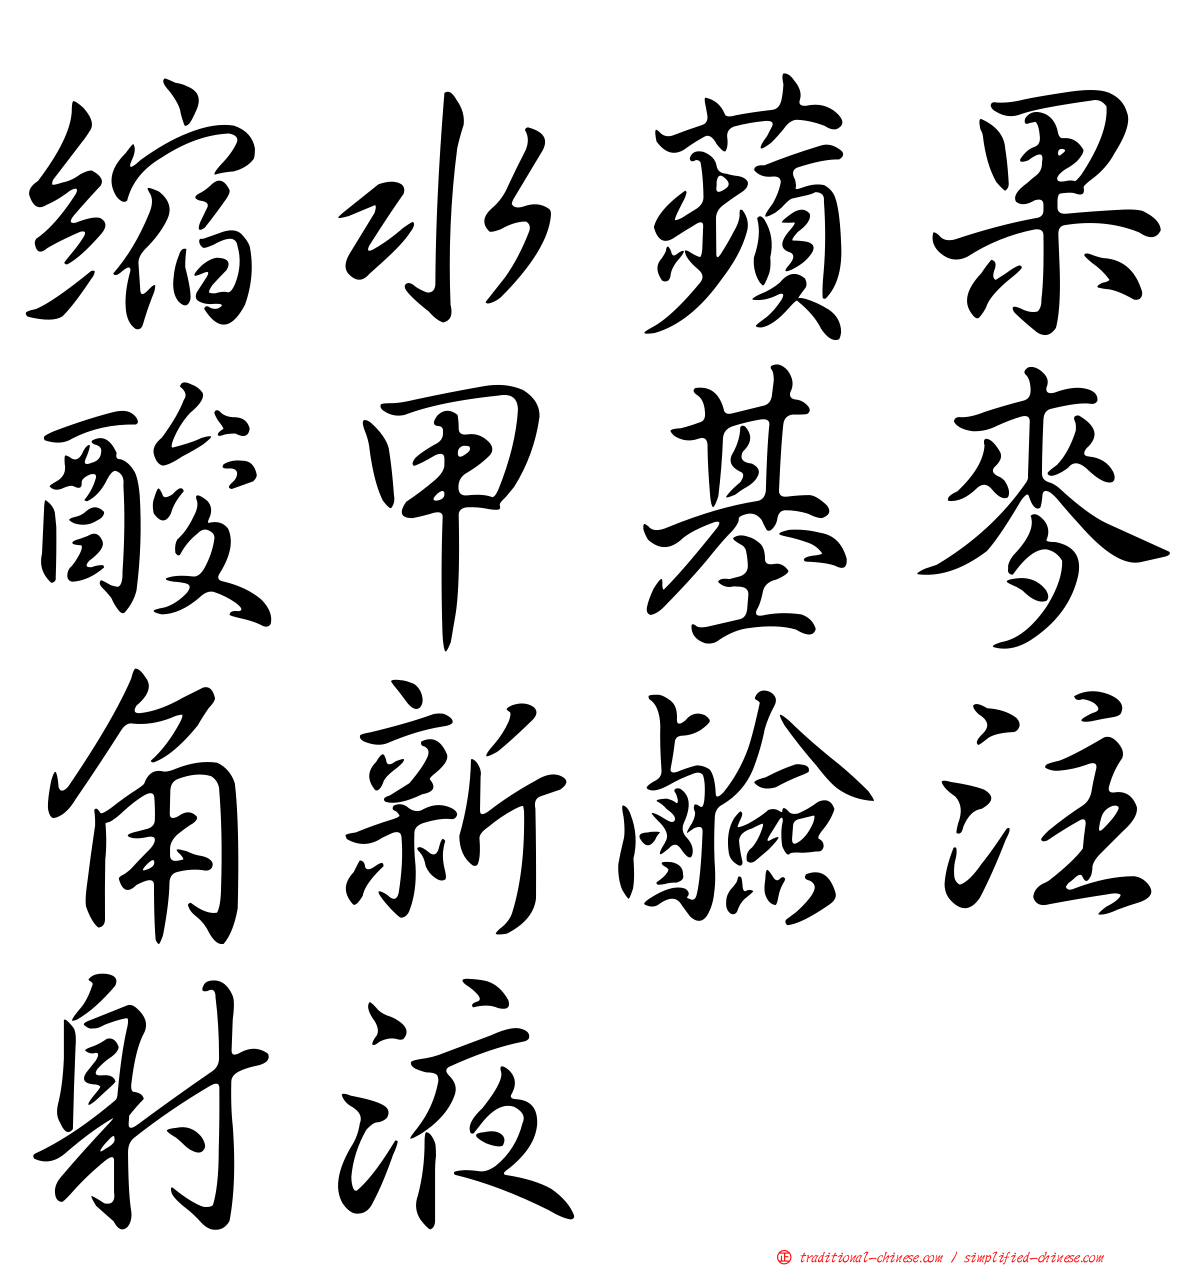 縮水蘋果
酸甲基麥
角新鹼注
射液
正 traditional-chinese.com / simplified-chinese.com